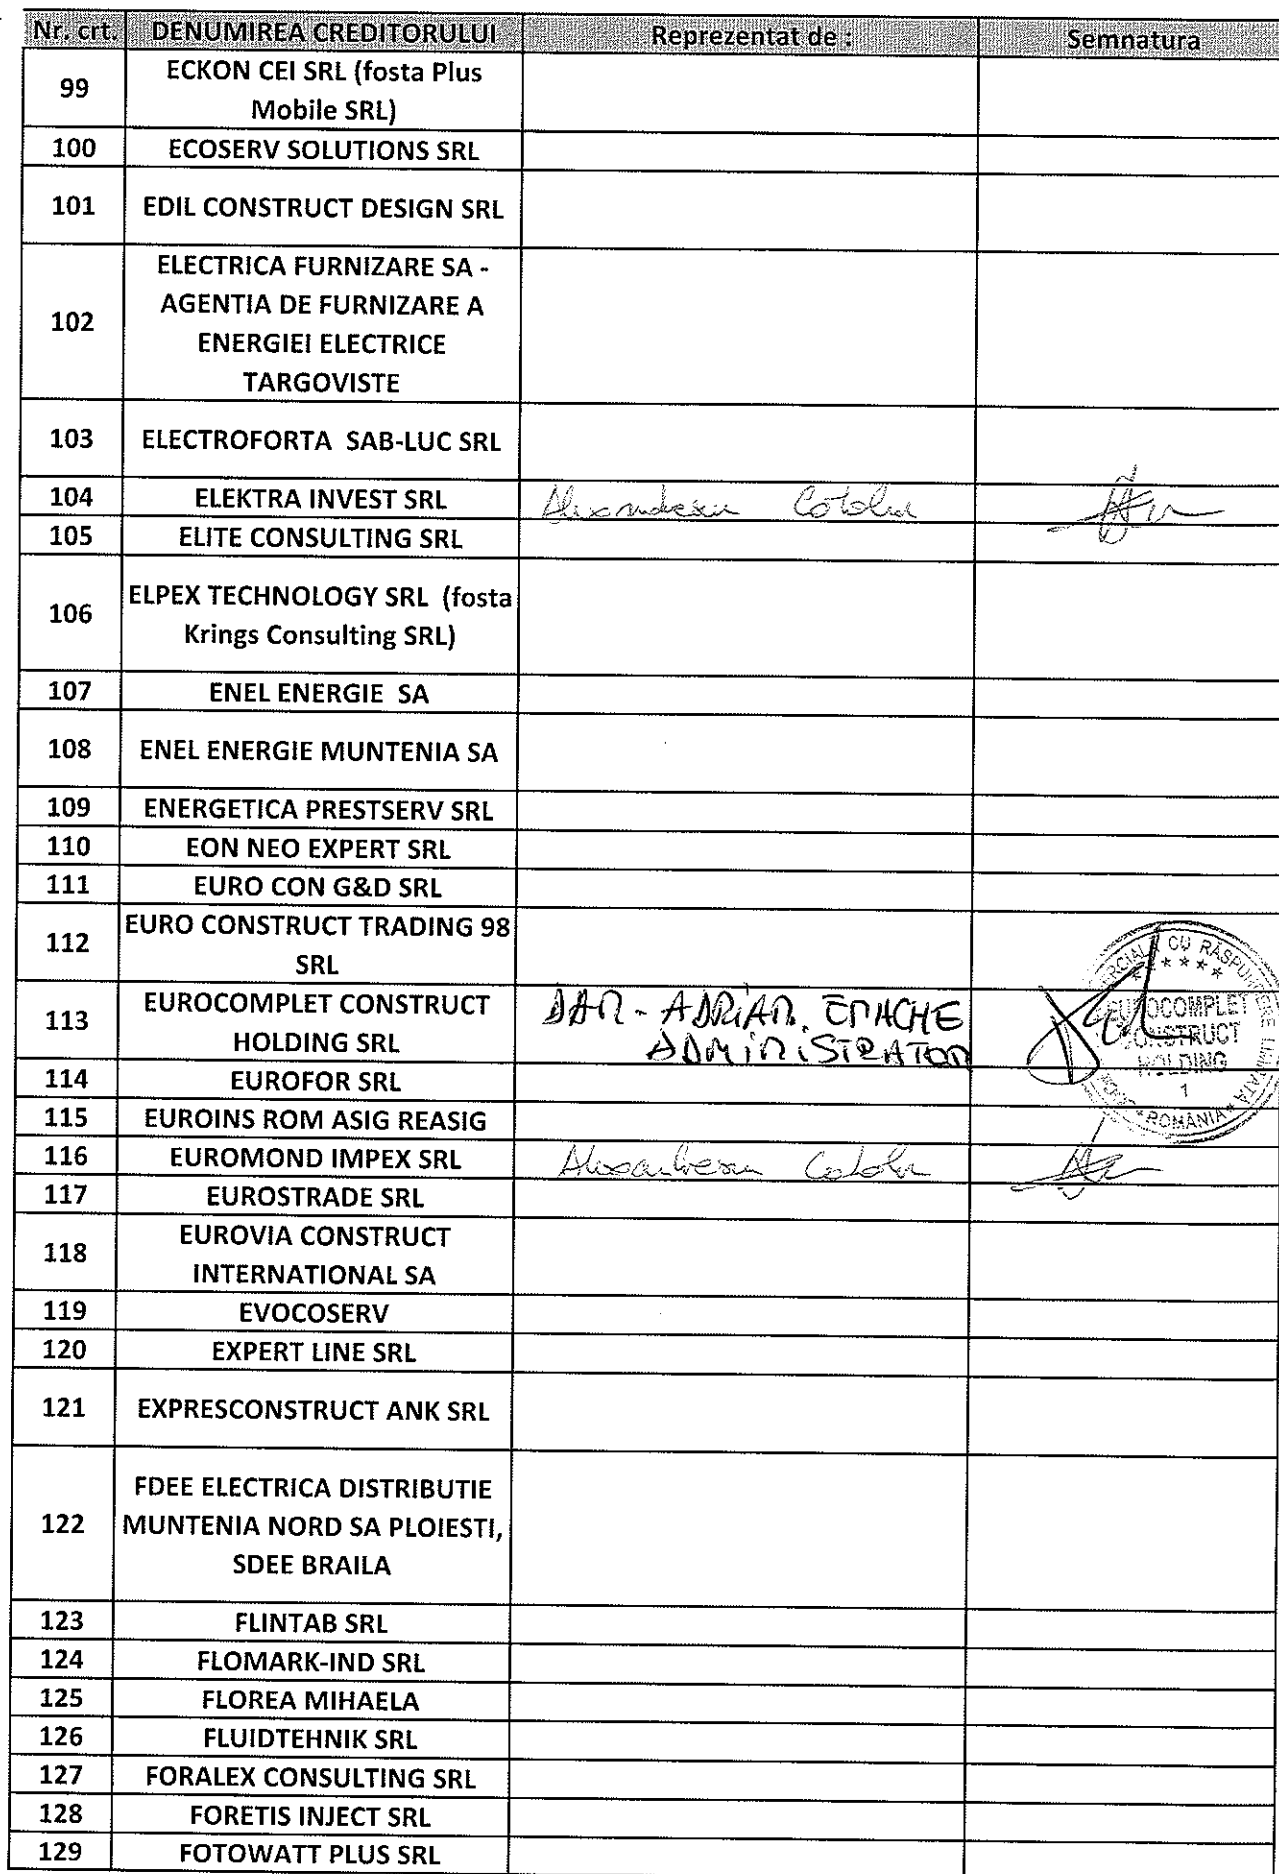 Nr. crt. DENUMIREA CREDITORULUI Reprezentat de : Semnatura
99 ECKON CEI SRL (fosta Plus
Mobile SRL)
100 ECOSERV SOLUTIONS SRL
101 EDIL CONSTRUCT DESIGN SRL
102 ELECTRICA FURNIZARE SA -
AGENTIA DE FURNIZARE A
ENERGIEI ELECTRICE
TARGOVISTE
103 ELECTROFORTA SAB-LUC SRL
104 ELEKTRA INVEST SRL
105 ELITE CONSULTING SRL
106 ELPEX TECHNOLOGY SRL (fosta
Krings Consulting SRL)
107 ENEL ENERGIE SA
108 ENEL ENERGIE MUNTENIA SA
109 ENERGETICA PRESTSERV SRL
110 EON NEO EXPERT SRL
111 EURO CON G&D SRL
112 EURO CONSTRUCT TRADING 98
SRL
113 EUROCOMPLET CONSTRUCT
HOLDING SRL
DAN-ADRIAN ENACHE
ADMINISTRATOR
CU RĂSPUNDERE LIMITATĂ
EUROCOMPLET
CONSTRUCT
HOLDING
1
* ROMÂNIA *
114 EUROFOR SRL
115 EUROINS ROM ASIG REASIG
116 EUROMOND IMPEX SRL
117 EUROSTRADE SRL
118 EUROVIA CONSTRUCT
INTERNATIONAL SA
119 EVOCOSERV
120 EXPERT LINE SRL
121 EXPRESCONSTRUCT ANK SRL
122 FDEE ELECTRICA DISTRIBUTIE
MUNTENIA NORD SA PLOIESTI,
SDEE BRAILA
123 FLINTAB SRL
124 FLOMARK-IND SRL
125 FLOREA MIHAELA
126 FLUIDTEHNIK SRL
127 FORALEX CONSULTING SRL
128 FORETIS INJECT SRL
129 FOTOWATT PLUS SRL